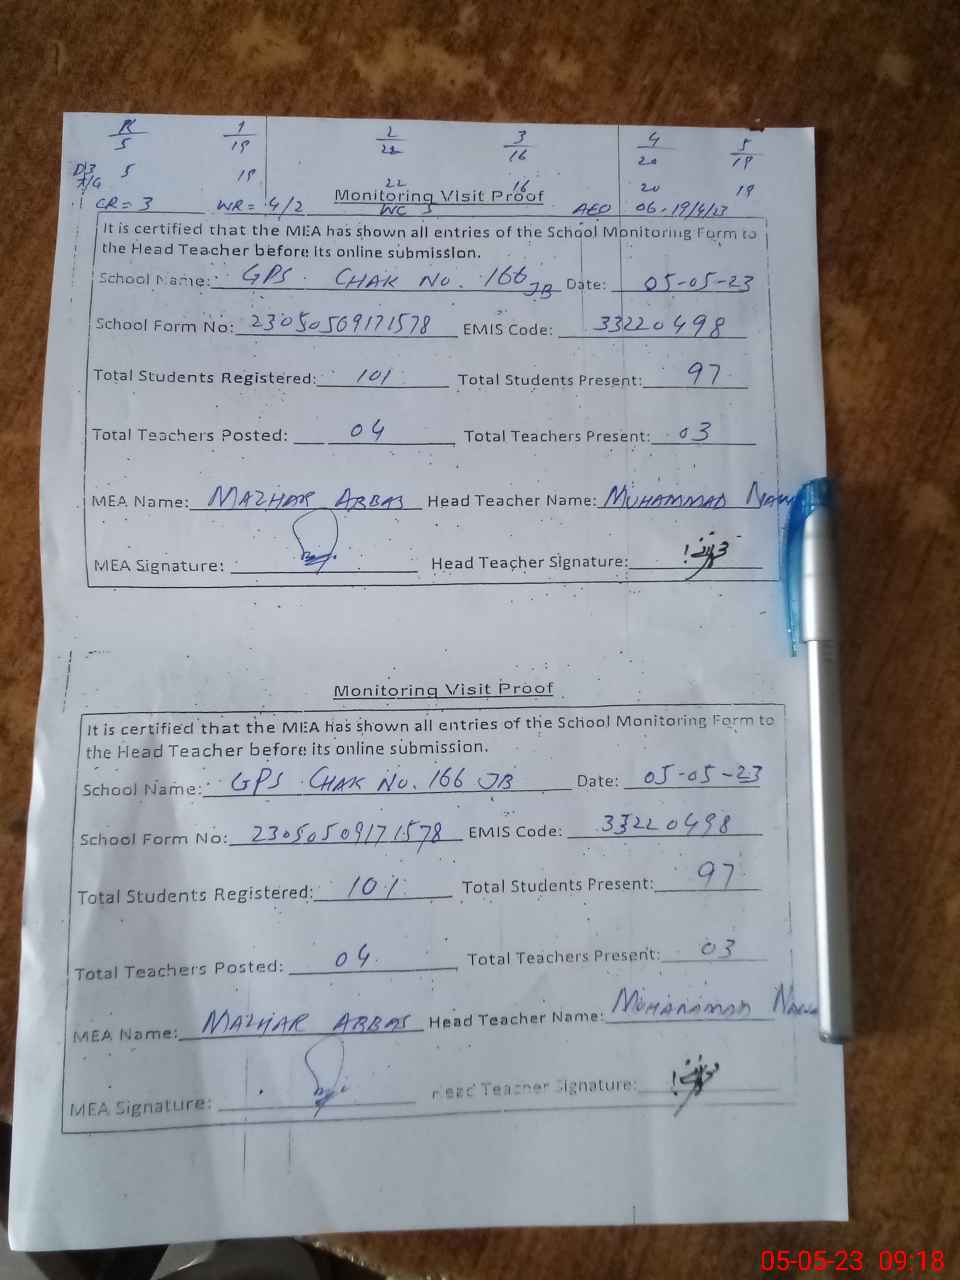 K/5 1/19 2/22 3/16 4/20 5/19
5 19 22 16 20 19
CR = 3 WR = 4/2 WC 3 AEO 06 - 19/4/23
Monitoring Visit Proof
It is certified that the MEA has shown all entries of the School Monitoring Form to
the Head Teacher before its online submission.
School Name: GPS CHAK No. 166 JB Date: 05-05-23
School Form No: 23050509171578 EMIS Code: 33220498
Total Students Registered: 101 Total Students Present: 97
Total Teachers Posted: 04 Total Teachers Present: 03
MEA Name: MAZHAR ABBAS Head Teacher Name: MUHAMMAD
MEA Signature: Head Teacher Signature:
Monitoring Visit Proof
It is certified that the MEA has shown all entries of the School Monitoring Form to
the Head Teacher before its online submission.
School Name: GPS CHAK No. 166 JB Date: 05-05-23
School Form No: 23050509171578 EMIS Code: 33220498
Total Students Registered: 101 Total Students Present: 97
Total Teachers Posted: 04 Total Teachers Present: 03
MEA Name: MAZHAR ABBAS Head Teacher Name: MUHAMMAD
MEA Signature: Head Teacher Signature:
05-05-23 09:18